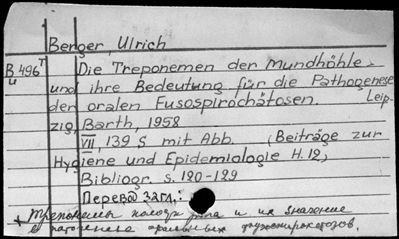 Berger, Ulrich
B 496т Die Treponemen der Mundhöhle
u und ihre Bedeutung für die Pathogenese
der oralen Fusospirochätosen. Leip-
zig, Barth, 1958
VIII, 139 S mit Abb. (Beiträge zur
Hygiene und Epidemiologie H. 12)
Bibliogr. S. 120-129
Перевод загл.:
Трепонемы полости рта и их значение
в патогенезе оральных фузоспирохетозов.